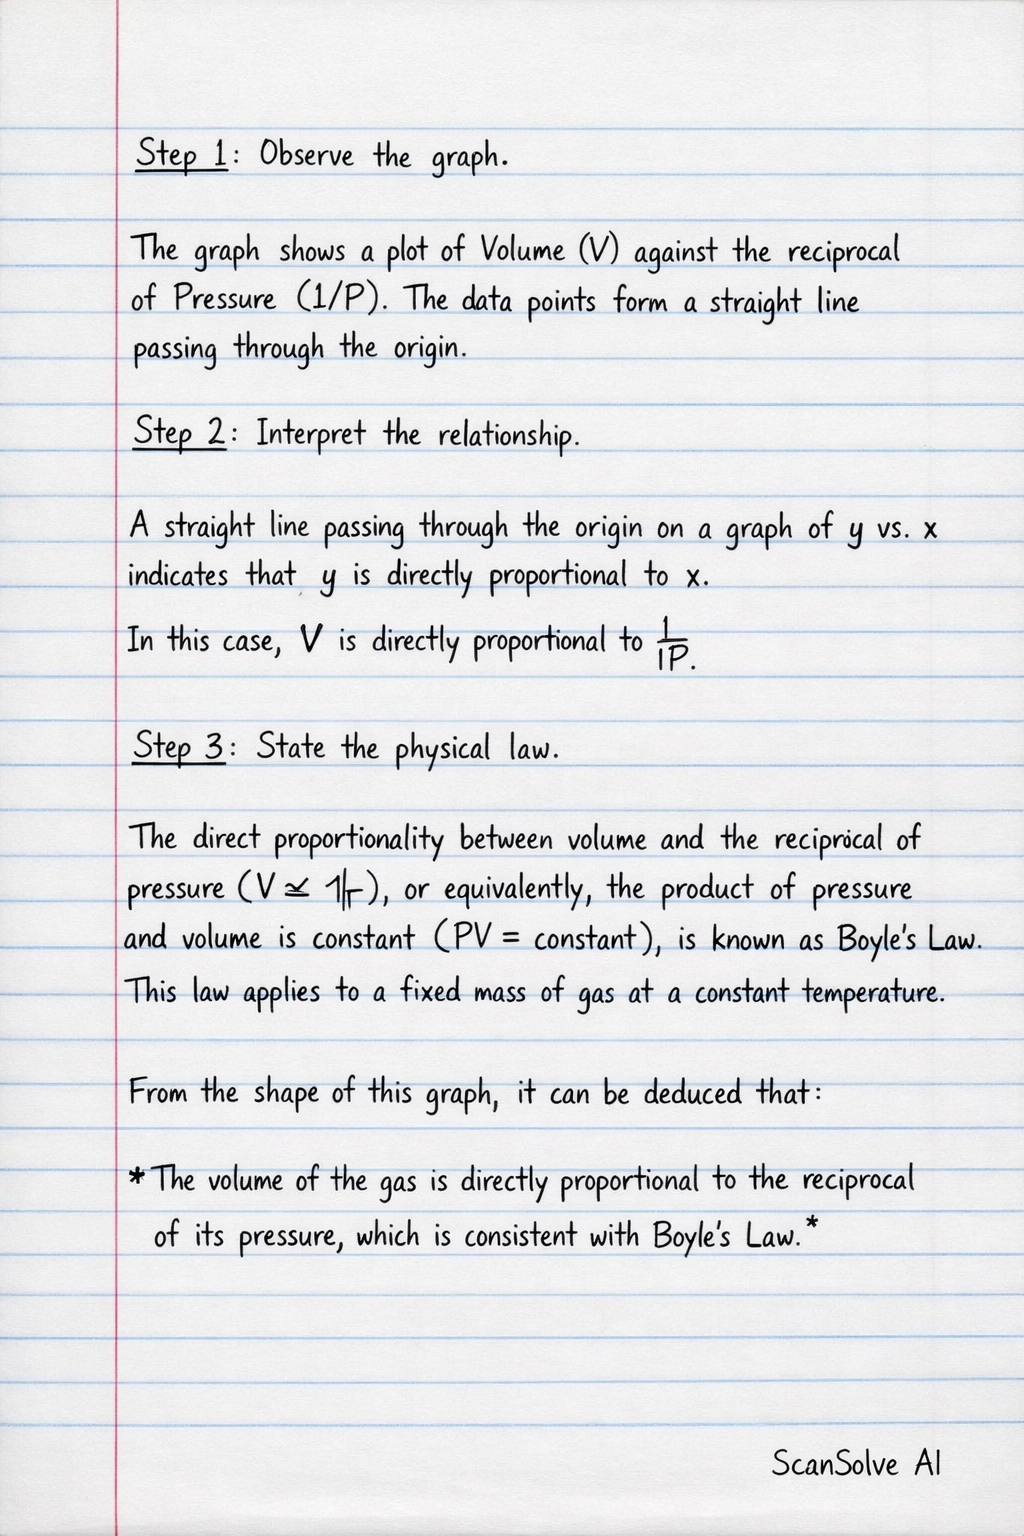 Step 1: Observe the graph.
The graph shows a plot of Volume (V) against the reciprocal
of Pressure (1/P). The data points form a straight line
passing through the origin.
Step 2: Interpret the relationship.
A straight line passing through the origin on a graph of y vs. x
indicates that y is directly proportional to x.
In this case, V is directly proportional to 1/IP.
Step 3: State the physical law.
The direct proportionality between volume and the reciprocal of
pressure (V ≚), or equivalently, the product of pressure
and volume is constant (PV = constant), is known as Boyle's Law.
This law applies to a fixed mass of gas at a constant temperature.
From the shape of this graph, it can be deduced that:
* The volume of the gas is directly proportional to the reciprocal
of its pressure, which is consistent with Boyle's Law.*
ScanSolve AI